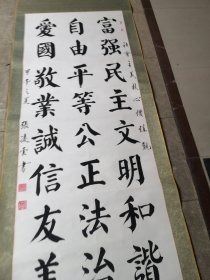 富强民主文明和諧
自由平等公正法治
愛國敬業誠信友善
主義核心價值觀
甲午之夏
張
書